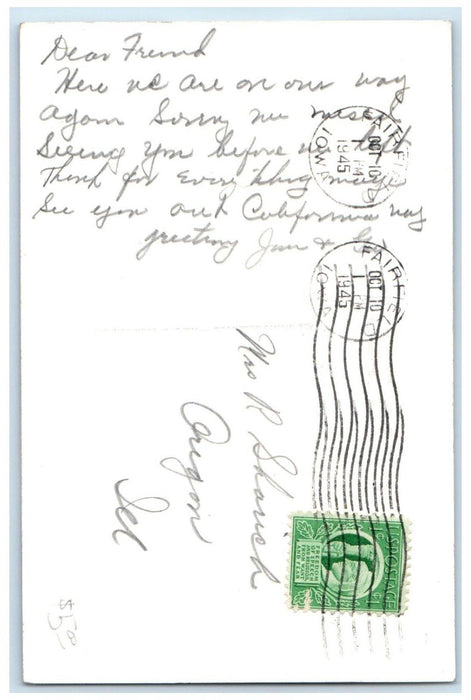 Dear Friend
Here we are on our way
again Sorry we missed
Seeing you before we left
Thank for everything maybe
See you out California way
greeting Jim &
FAIRFIELD
OCT 10
1 PM
1945
IOWA
FAIRFIELD
OCT 10
1 PM
1945
IOWA
Mrs R Sharick
Oregon
Ill
POSTAGE
$5.00